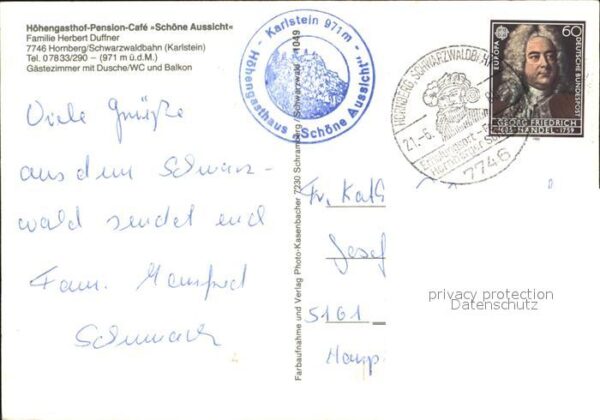 Höhengasthof-Pension-Café »Schöne Aussicht«
Familie Herbert Duffner
7746 Hornberg/Schwarzwaldbahn (Karlstein)
Tel. 07833/290 – (971 m ü.d.M.)
Gästezimmer mit Dusche/WC und Balkon
Viele Grüße
aus dem Schwarz-
wald sendet euch
Fam. Manfred
- Karlstein 971m - „Schöne Aussicht“
Höhengasthaus
Farbaufnahme und Verlag Photo-Kasenbacher 7230 Schramberg / Schwarzwald 1049
HORNBERG, SCHWARZWALDBAHN
21.-6.
7746
EUROPA
60
DEUTSCHE BUNDESPOST
GEORG FRIEDRICH
HÄNDEL · 1759
Fr. Kath
Josef
5161
privacy protection
Datenschutz